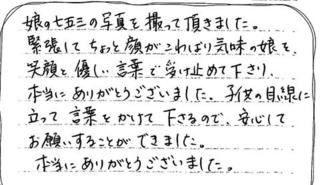 娘の七五三の写真を撮って頂きました。
緊張してちょっと顔がこわばり気味の娘を、
笑顔と優しい言葉で受け止めて下さり、
本当にありがとうございました。子供の目線に
立って言葉をかけて下さるので、安心して
お願いすることができました。
本当にありがとうございました。